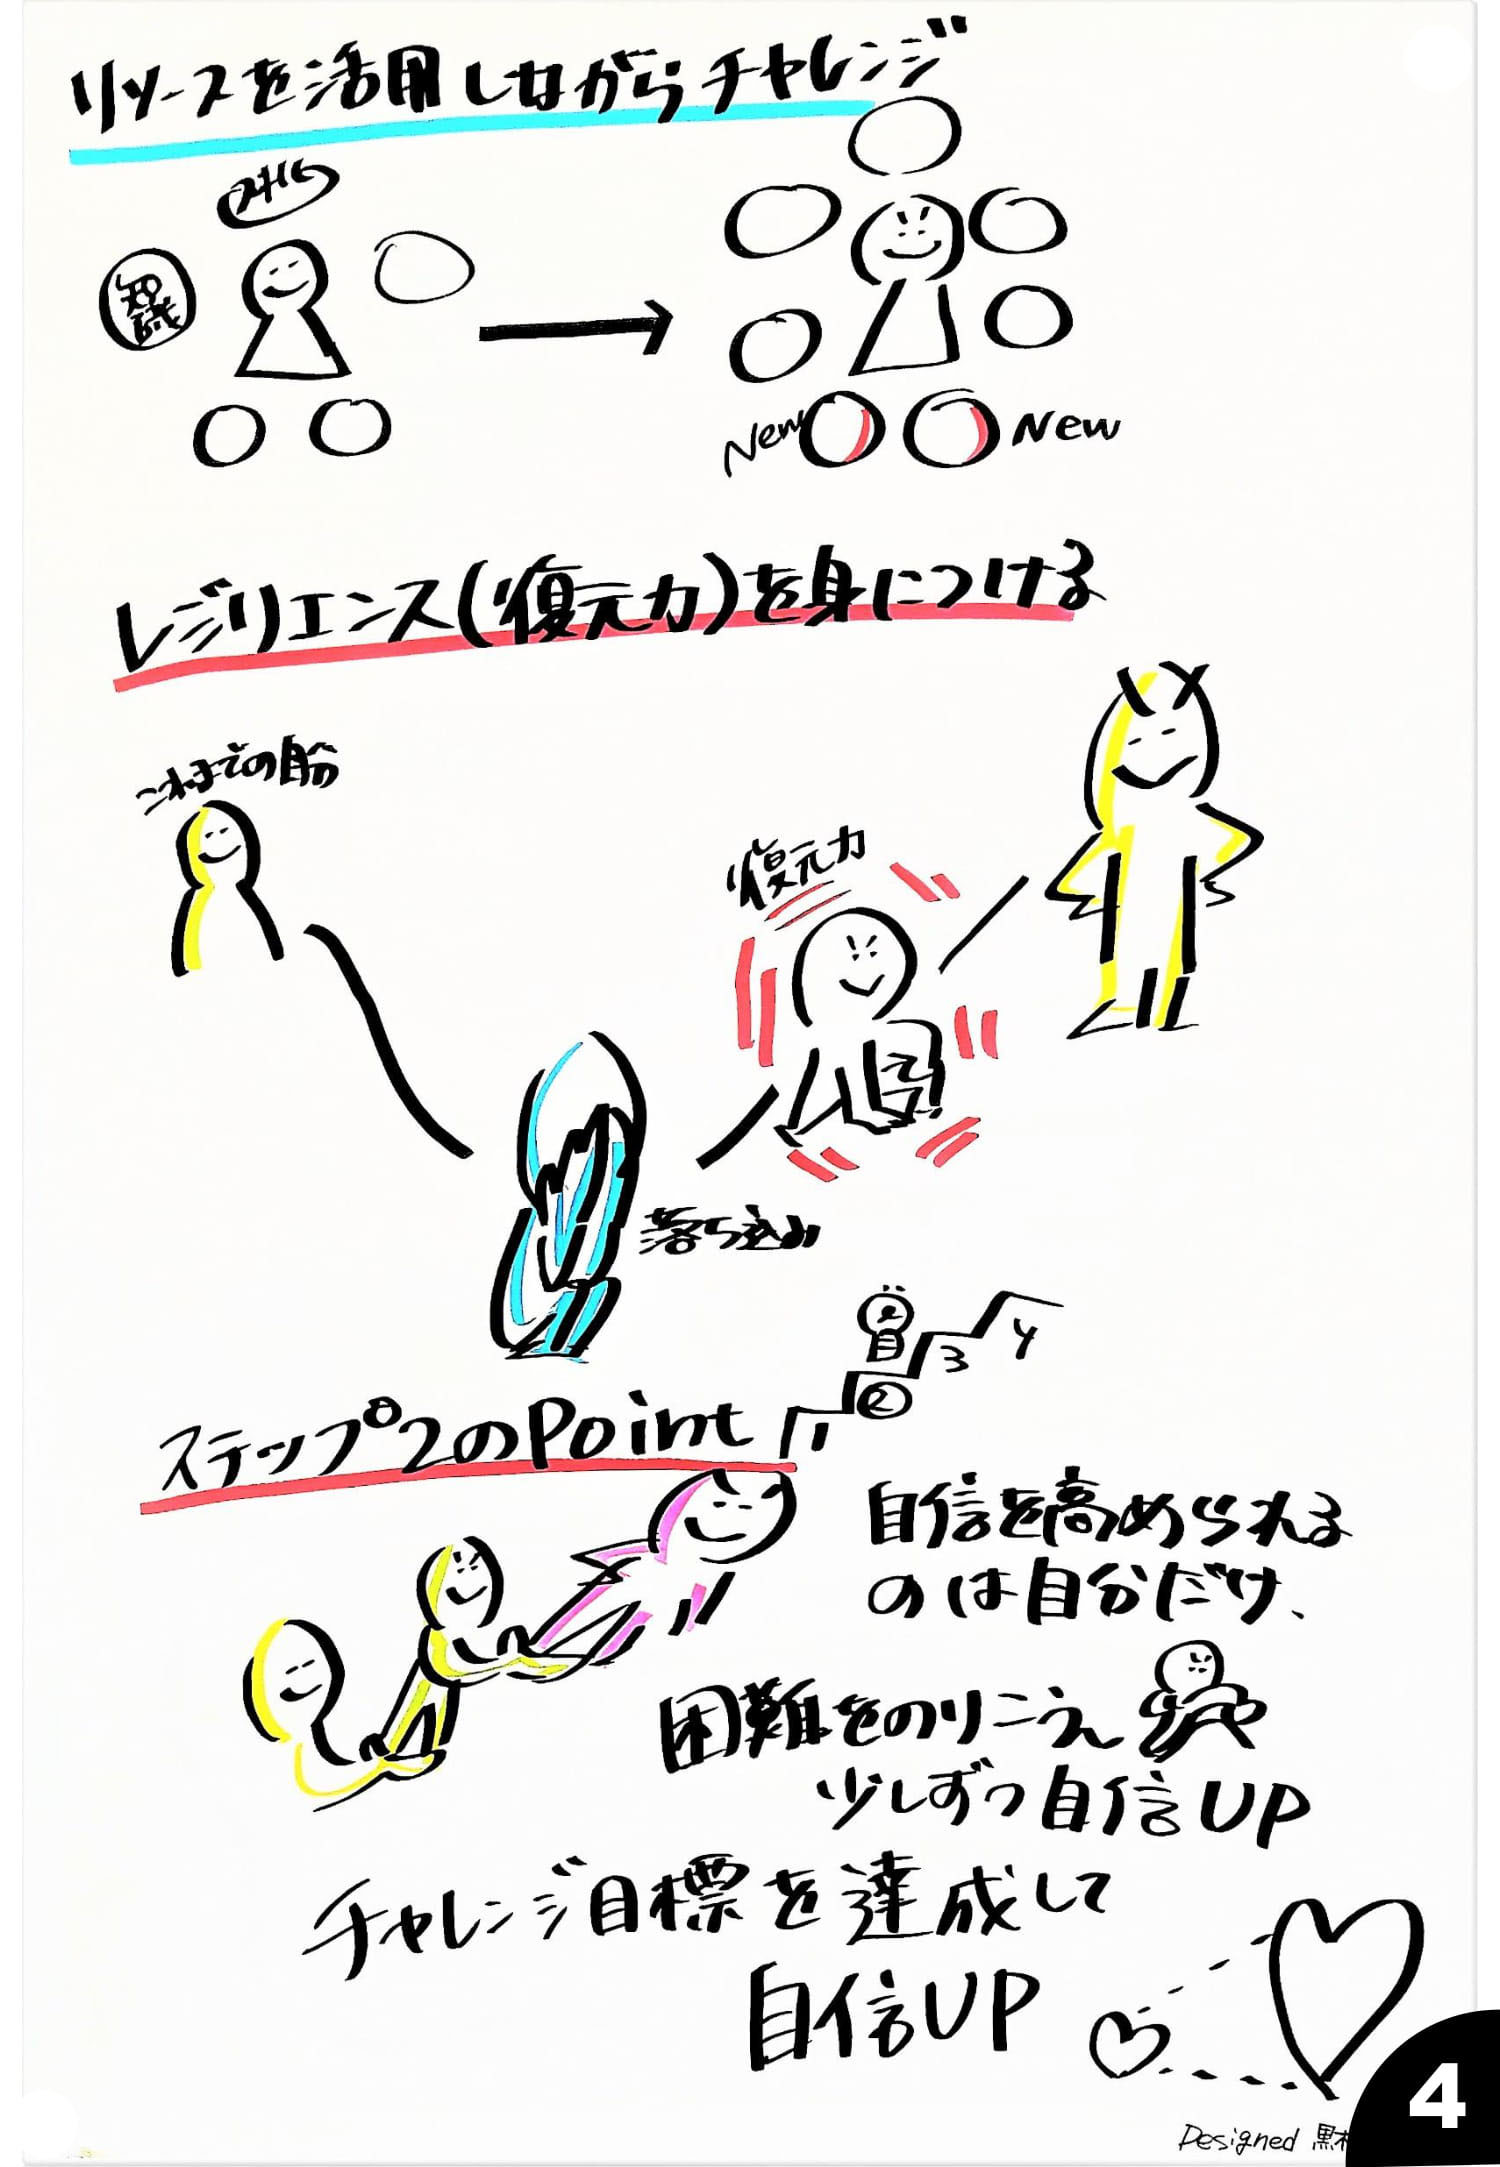 リソースを活用しながらチャレンジ
スキル
知識
New
New
レジリエンス(復元力)を身につける
これまでの自分
復元力
落ち込み
ステップ2のPoint
1
2
3
4
自信を高められる
のは自分だけ、
困難をのりこえ
少しずつ自信UP
チャレンジ目標を達成して
自信UP
4
Designed 黒木